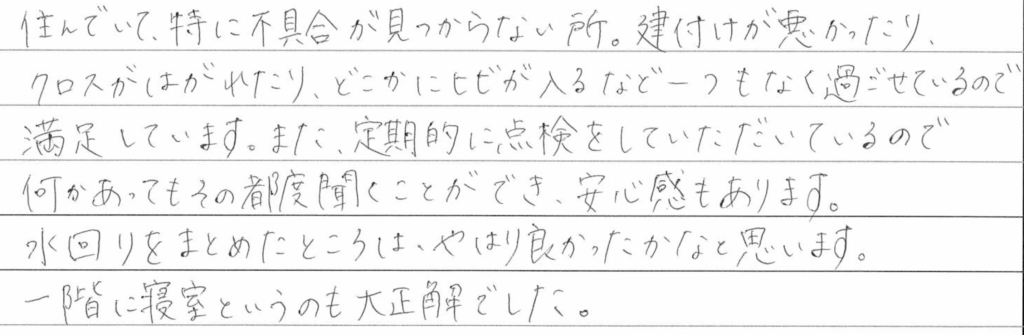 住んでいて、特に不具合が見つからない所。建付けが悪かったり、
クロスがはがれたり、どこかにヒビが入るなど一つもなく過ごせているので
満足しています。また、定期的に点検をしていただいているので
何かあってもその都度聞くことができ、安心感もあります。
水回りをまとめたところは、やはり良かったかなと思います。
一階に寝室というのも大正解でした。